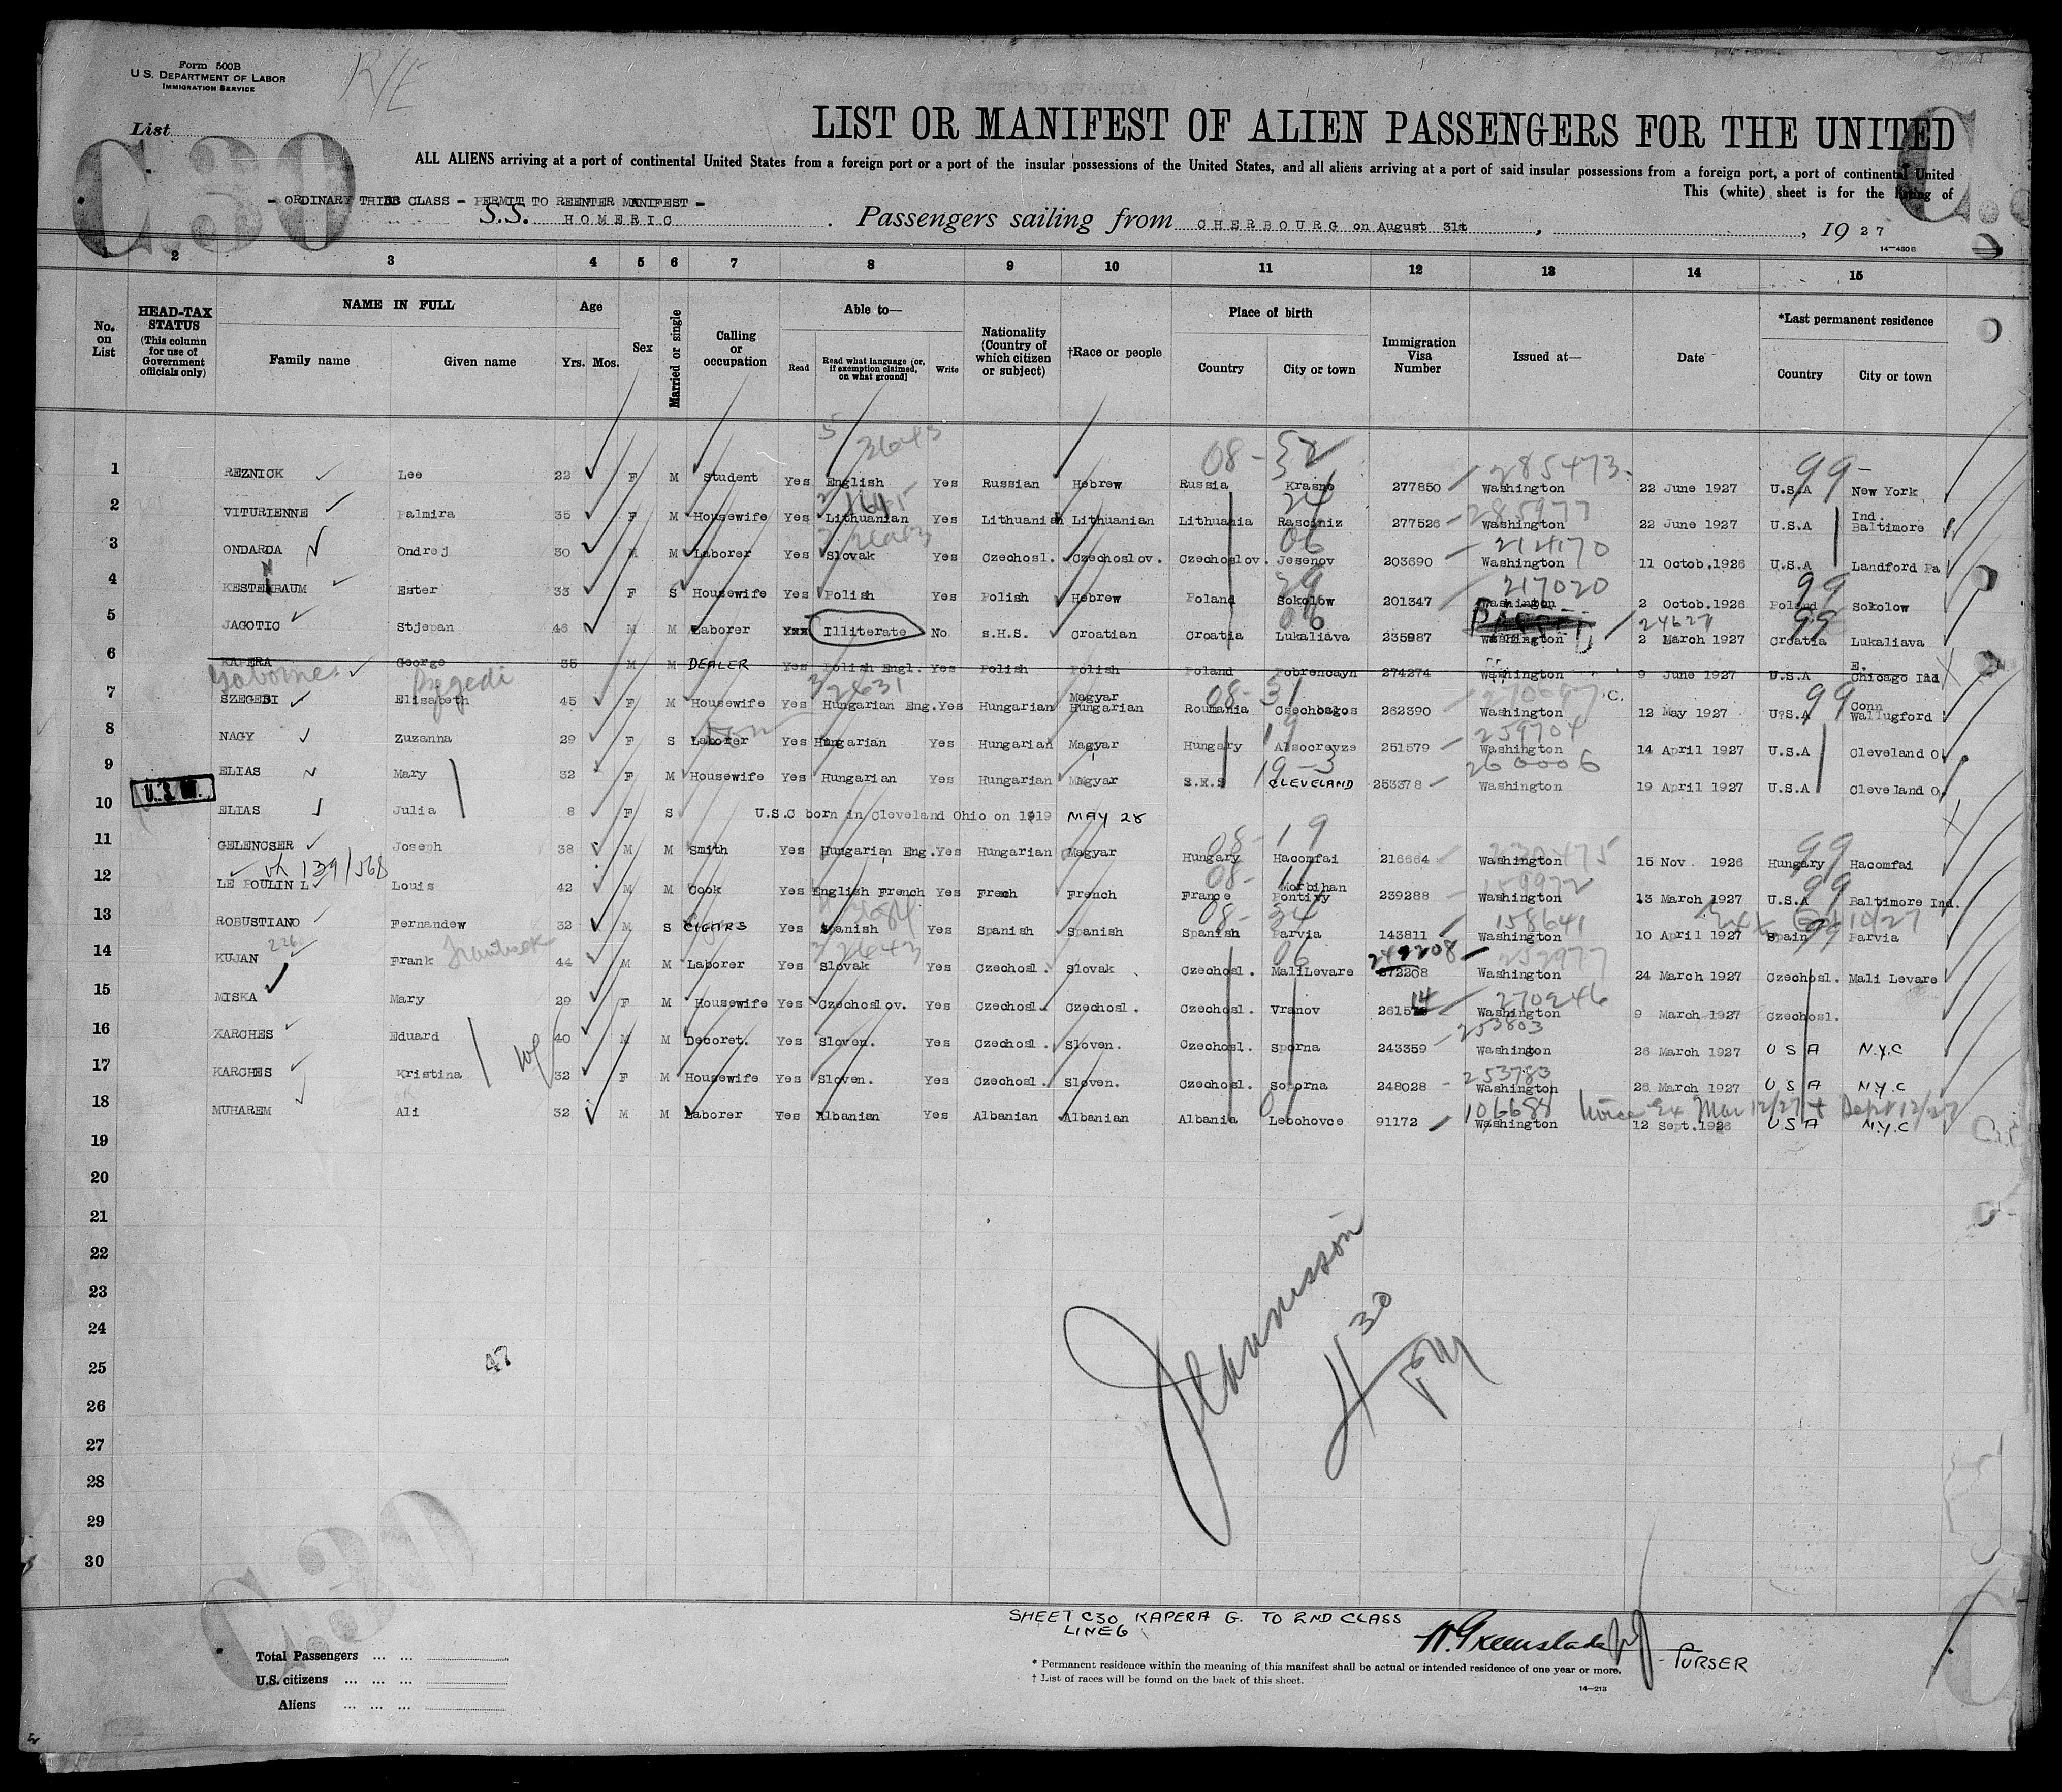 Form 500B
U.S. DEPARTMENT OF LABOR
IMMIGRATION SERVICE
R/E
List
C.30
LIST OR MANIFEST OF ALIEN PASSENGERS FOR THE UNITED
ALL ALIENS arriving at a port of continental United States from a foreign port or a port of the insular possessions of the United States, and all aliens arriving at a port of said insular possessions from a foreign port, a port of continental United
This (white) sheet is for the listing of
- ORDINARY THIRD CLASS - PERMIT TO REENTER MANIFEST -
S.S. HOMERIC. Passengers sailing from CHERBOURG on August 31st, 1927
14-430B
2 3 4 5 6 7 8 9 10 11 12 13 14 15
No. on List
HEAD-TAX STATUS (This column for use of Government officials only)
NAME IN FULL
Family name Given name
Age
Yrs. Mos.
Sex
Married or single
Calling or occupation
Able to—
Read
Read what language [or, if exemption claimed, on what ground]
Write
Nationality (Country of which citizen or subject)
†Race or people
Place of birth
Country City or town
Immigration Visa Number
Issued at—
Date
*Last permanent residence
Country City or town
5 3643 08-
1 REZNICK Lee 22 F M Student Yes English Yes Russian Hebrew Russia Krasno 277850 285473 Washington 22 June 1927 99 U.S.A New York
2 VITURIENNE Palmira 35 F M Housewife Yes Lithuanian Yes Lithuanian Lithuanian Lithuania 24 Rasciniz 277526 285977 Washington 22 June 1927 U.S.A Ind. Baltimore
3 ONDARCA Ondrej 30 M M Laborer Yes Slovak Yes Czechosl. Czechoslov. Czechoslov. 06 Jesenov 203690 212170 Washington 11 Octob.1926 U.S.A Landford Pa
4 KESTENBAUM Ester 33 F S Housewife Yes Polish Yes Polish Hebrew Poland 29 Sokolow 201347 217020 Washington 2 Octob.1926 99 Poland Sokolow
5 JAGOTIC Stjepan 46 M M Laborer Illiterate No S.H.S. Croatian Croatia 06 Lukaliava 235987 Washington 24627 2 March 1927 99 Croatia Lukaliava
6 KAPERA George 35 M M DEALER Yes Polish Engl. Yes Polish Polish Poland Pobrencayn 274274 Washington 9 June 1927 U.S.A E. Chicago Ind
Szegedi
7 SZEGEDI Elisabeth 45 F M Housewife Yes Hungarian Eng. Yes Hungarian Magyar Hungarian 08-31 Roumania 262390 270697 Washington 12 May 1927 99 U.S.A Conn Wallugford
8 NAGY Zuzanna 29 F S Laborer Yes Hungarian Yes Hungarian Magyar Hungary 19 Alsocreyze 251579 259704 Washington 14 April 1927 U.S.A Cleveland O.
9 ELIAS Mary 32 F M Housewife Yes Hungarian Yes Hungarian Magyar 19-3 CLEVELAND 253378 260006 Washington 19 April 1927 U.S.A Cleveland O.
10 ELIAS Julia 8 F S U.S.C born in Cleveland Ohio on 1919 MAY 28
11 GELENCSER Joseph 38 M M Smith Yes Hungarian Eng. Yes Hungarian Magyar 08-19 Hungary Hacomfai 216664 230475 Washington 15 Nov. 1926 99 Hungary Hacomfai
139/568
12 LE POULIN L Louis 42 M M Cook Yes English French Yes French French 08-11 France Morbihan Pontivy 239288 159972 Washington 13 March 1927 99 U.S.A Baltimore Ind.
13 ROBUSTIANO Fernandew 32 M S CIGARS Yes Spanish Yes Spanish Spanish 08-34 Spanish Parvia 143811 158641 Washington 10 April 1927 99 Spain Parvia
14 KUJAN Frank 44 M M Laborer Yes 3 2643 Slovak Yes Czechosl. Slovak Czechosl. 06 MaliLevare 249208 272208 252977 Washington 24 March 1927 Czechosl. Mali Levare
15 MISKA Mary 29 F M Housewife Yes Czechoslov. Yes Czechosl. Czechosl. Czechosl. Vranov 14 270246 Washington 9 March 1927 Czechosl.
16 KARCHES Eduard 40 M M Decoret. Yes Sloven. Yes Czechosl. Sloven. Czechosl. Sporna 243359 253803 Washington 26 March 1927 USA N.Y.C
17 KARCHES Kristina 32 F M Housewife Yes Sloven. Yes Czechosl. Sloven. Czechosl. Soporna 248028 253783 Washington 26 March 1927 USA N.Y.C
18 MUHAREM Ali 32 M M Laborer Yes Albanian Yes Albanian Albanian Albania Lebohovce 91172 106688 Washington 12 Sept.1926 USA N.Y.C
19
20
21
22
23
24
25
26
27
28
29
30
47
H 30
C.30
SHEET C30 KAPERA G. TO 2ND CLASS
LINE 6
PURSER
Total Passengers ... ...
U.S. citizens ... ... ...
Aliens ... ... ...
* Permanent residence within the meaning of this manifest shall be actual or intended residence of one year or more.
† List of races will be found on the back of this sheet.
14-213